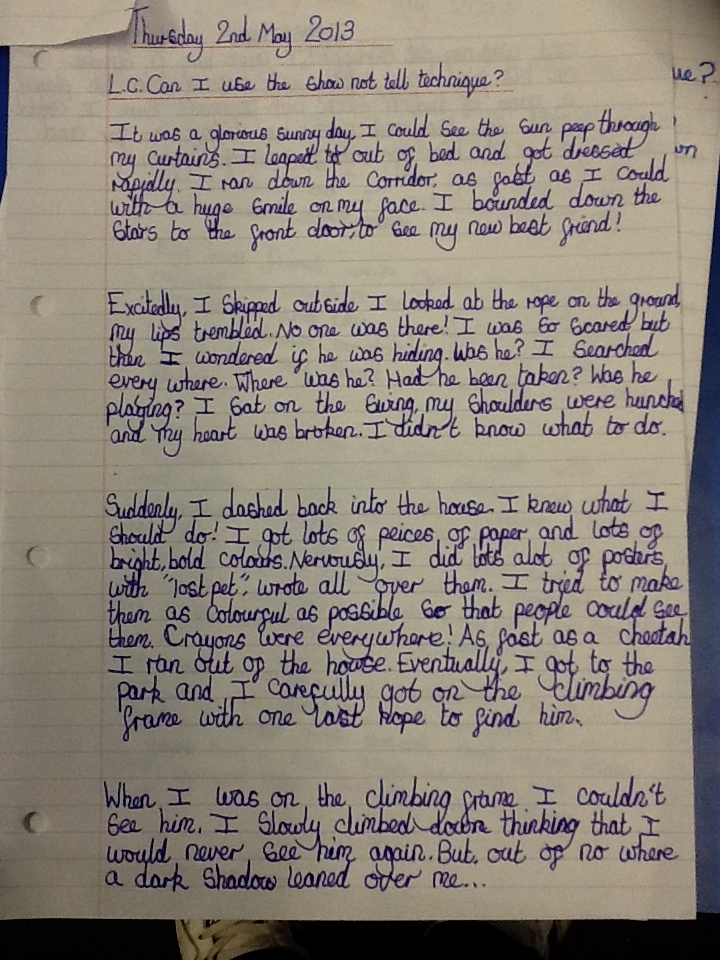 Thursday 2nd May 2013
L.C. Can I use the show not tell technique?
ue?
It was a glorious sunny day, I could see the sun peep through
my curtains. I leaped to out of bed and got dressed
wn
rapidly. I ran down the corridor, as fast as I could
with a huge smile on my face. I bounded down the
stars to the front door, to see my new best friend!
Excitedly, I skipped outside I looked at the rope on the ground,
my lips trembled. No one was there! I was so scared but
then I wondered if he was hiding. Was he? I searched
every where. Where was he? Had he been taken? Was he
playing? I sat on the swing, my shoulders were hunched
and my heart was broken. I didn't know what to do.
Suddenly, I dashed back into the house. I knew what I
should do! I got lots of peices of paper and lots of
bright, bold colours. Nervously, I did lots alot of posters
with "lost pet", wrote all over them. I tried to make
them as colourful as possible so that people could see
them. Crayons were everywhere! As fast as a cheetah
I ran out of the house. Eventually, I got to the
park and I carefully got on the climbing
frame with one last hope to find him.
When I was on the climbing frame I couldn't
see him. I slowly climbed down thinking that I
would never see him again. But, out of no where
a dark shadow leaned over me...